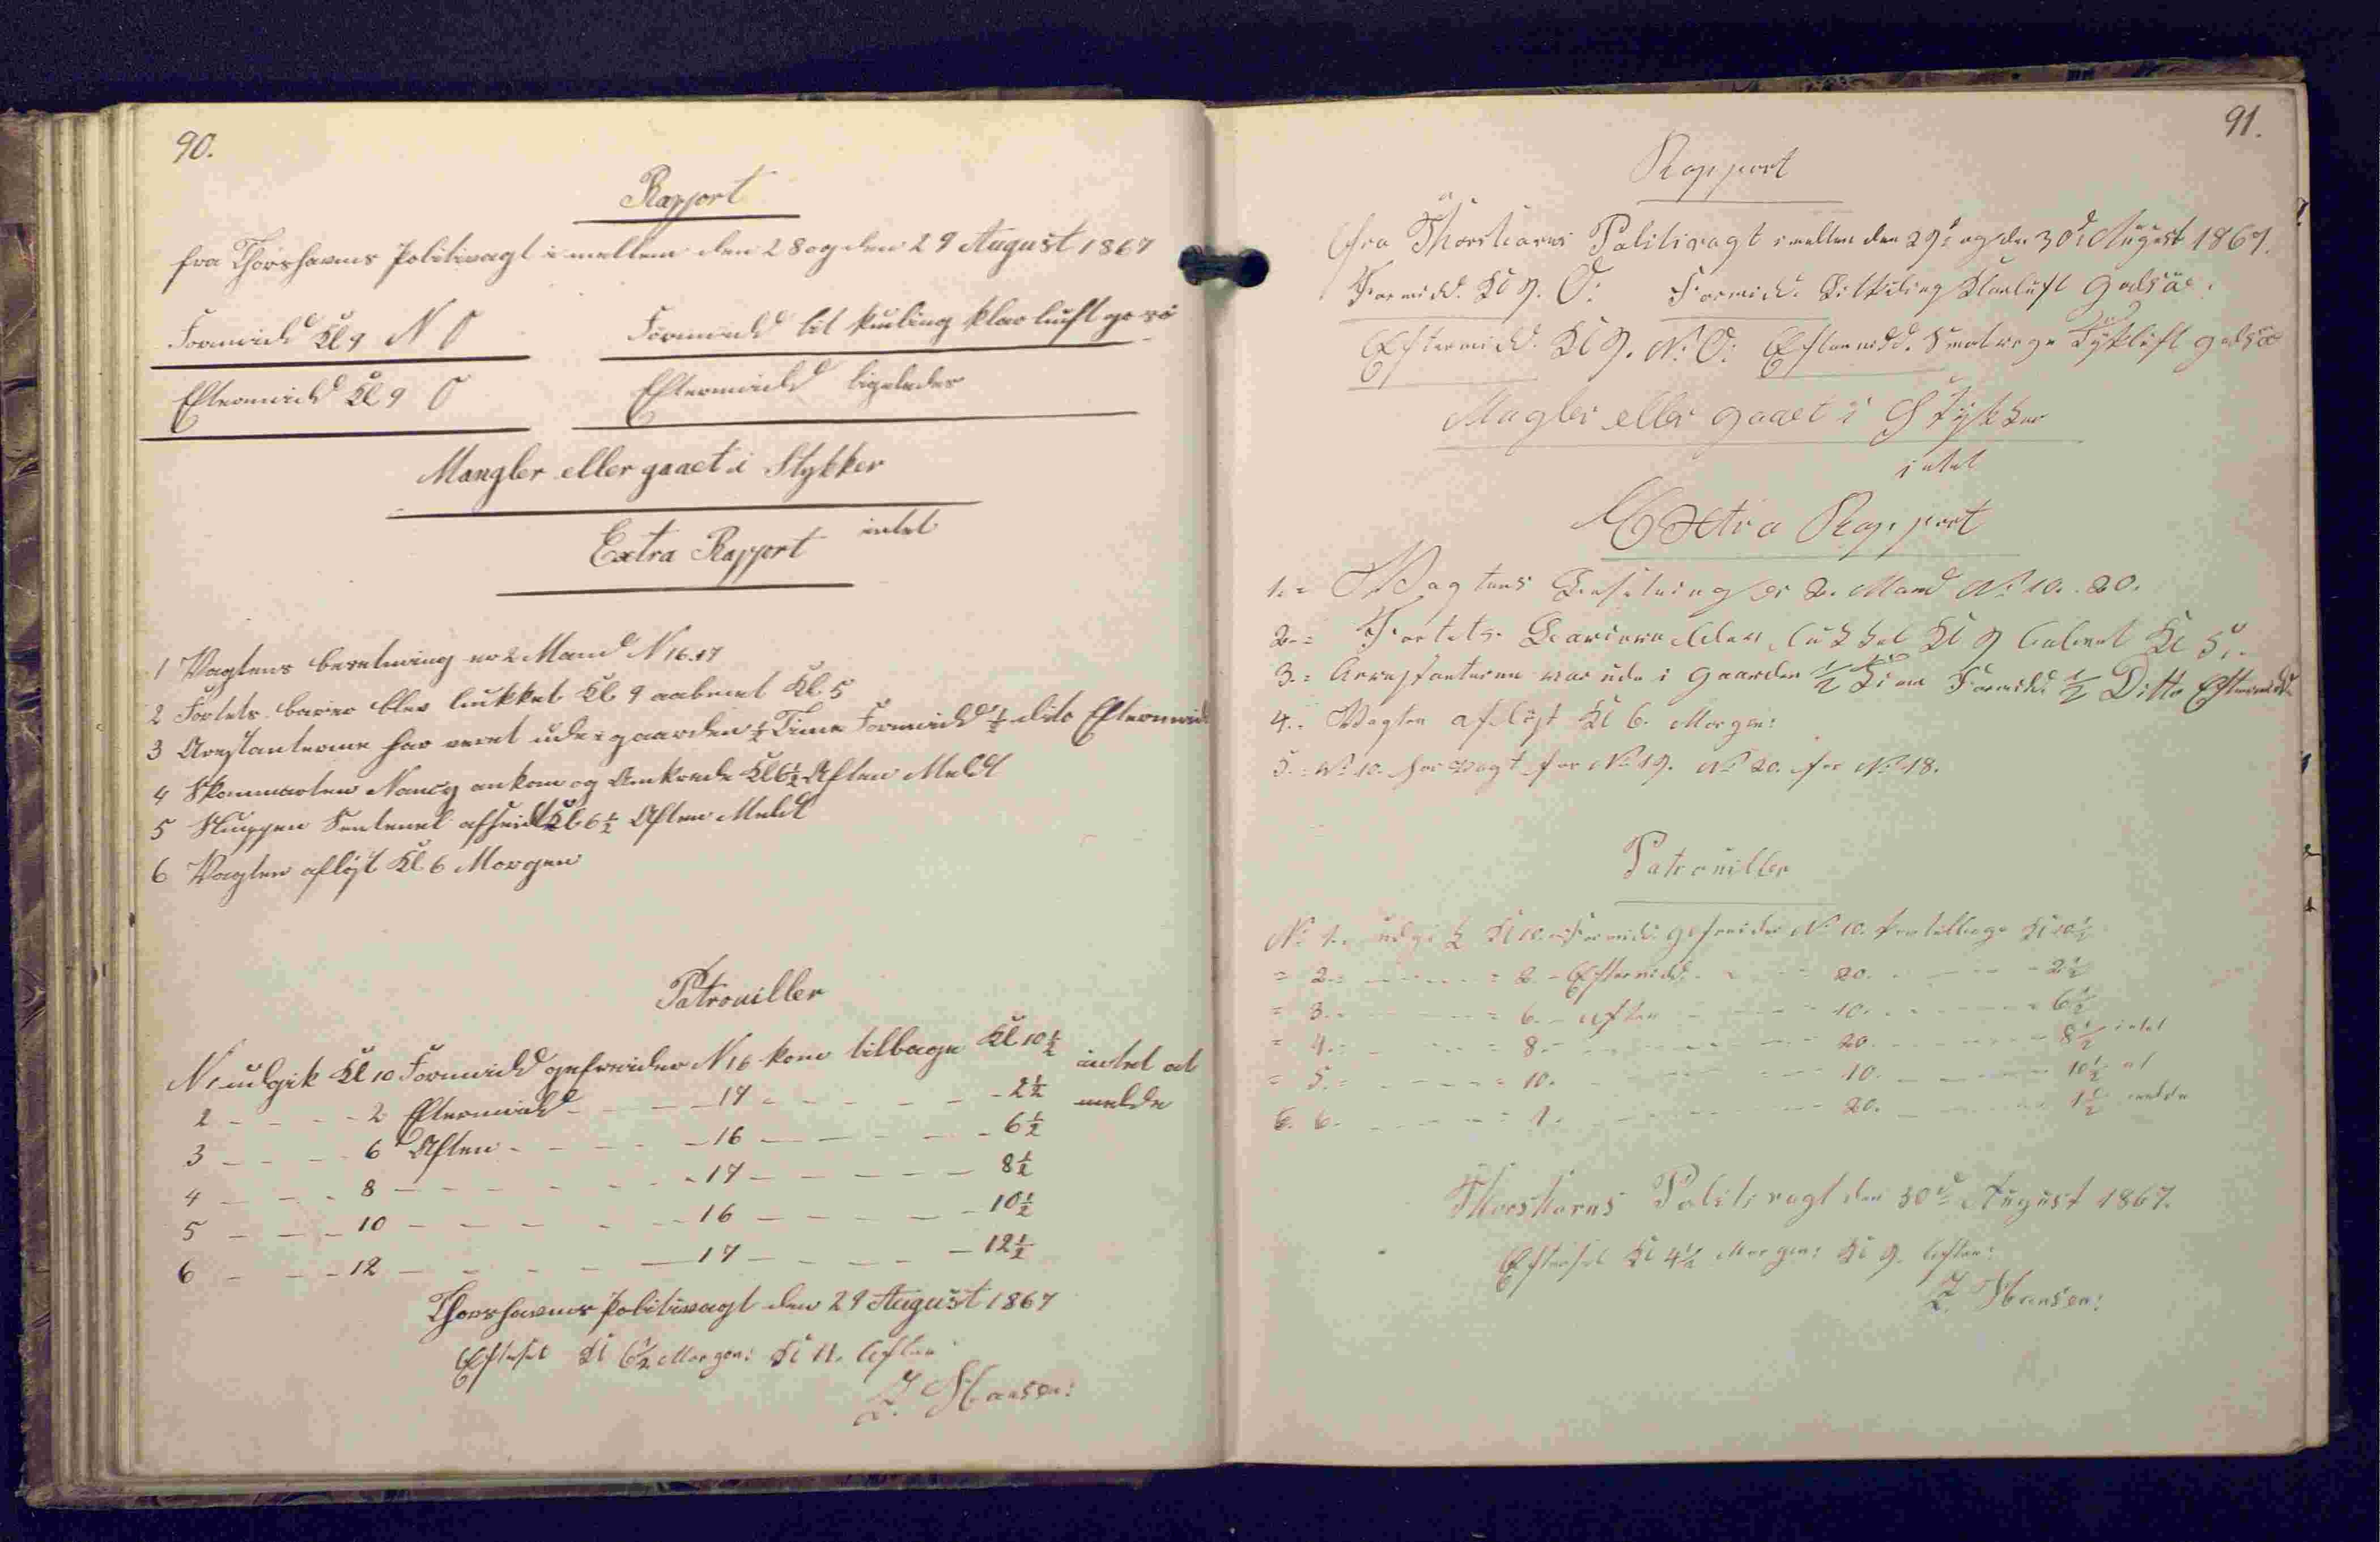 90.
Rapport
fra Thorshavns Politivagt imellem den 28 og den 29 August 1867
Formidd Kl 9 N O Formidd lit kuling klar luft
Eftermidd Kl 9 O Eftermidd ligeledes
Mangler eller gaaet i Stykker
intet
Extra Rapport
1 Vagtens besetning er 2 Mand N 16.17
2 Fortets barier blev lukket Kl 9 aabnet Kl 5
3 Arestanterne har veret ude i gaarden ½ Time Formidd ½ dito Eftermid
4 Skonnerten Nancy ankom og Ankrede Kl 6½ Aften Meldt
5 Sluppen Sentenel afseilt Kl 6½ Aften Meldt
6 Vagten afløst Kl 6 Morgen
Patrouiller
N 1 udgik Kl 10 Formidd gefreider N 16 kom tilbage Kl 10½ intet at
2 - - - 2 Eftermidd - - - 17 - - - - 2½ melde
3 - - - 6 Aften - - - - 16 - - - - 6½
4 - - - 8 - - - - - 17 - - - - 8½
5 - - - 10 - - - - - 16 - - - - 10½
6 - - - 12 - - - - - 17 - - - - 12½
Thorshavns Politivagt den 29 August 1867
Efterset Kl 6½ Morgen: Kl 11. Aften
Hansen:
91.
Rapport
fra Thorshavns Politivagt imellem den 29d og den 30d August 1867.
Formidd. Kl 9. O: Formidd. Litkuling Klarluft
Eftermidd. Kl 9. N. O: Eftermidd. Tykluft
Magler eller gaaet i Stykker
intet
Extra Rapport
1.= Wagtens Besetning er 2. Mand No 10. 20.
2.= Fortets Barier blev lukket Kl 9 aabnet Kl 5.
3.= Arrestanterne var ude i Gaarden ½ Time Formidd ½ Ditto Eftermidd
4.= Wagten afløst Kl 6. Morgen:
5.= No 10. har vagt for No 19. No 20. for No 18.
Patrouiller
No 1. udgik Kl 10. Formidd. gefreider No 10. kom tilbage Kl 10½
= 2.= - - - = 2. - Eftermidd. - - - 20. - - - 2½
= 3.= - - - = 6. - Aften - - - 10. - - - 6½
= 4.= - - - = 8. - - - - 20. - - - 8½ intet
= 5.= - - - = 10. - - - - 10. - - - 10½ at
6. 6. - - - = 1. - - - - 20. - - - 1½ melde
Thorshavns Politivagt den 30d August 1867.
Efterset Kl 4½ Morgen: Kl 9. Aften:
Hansen: